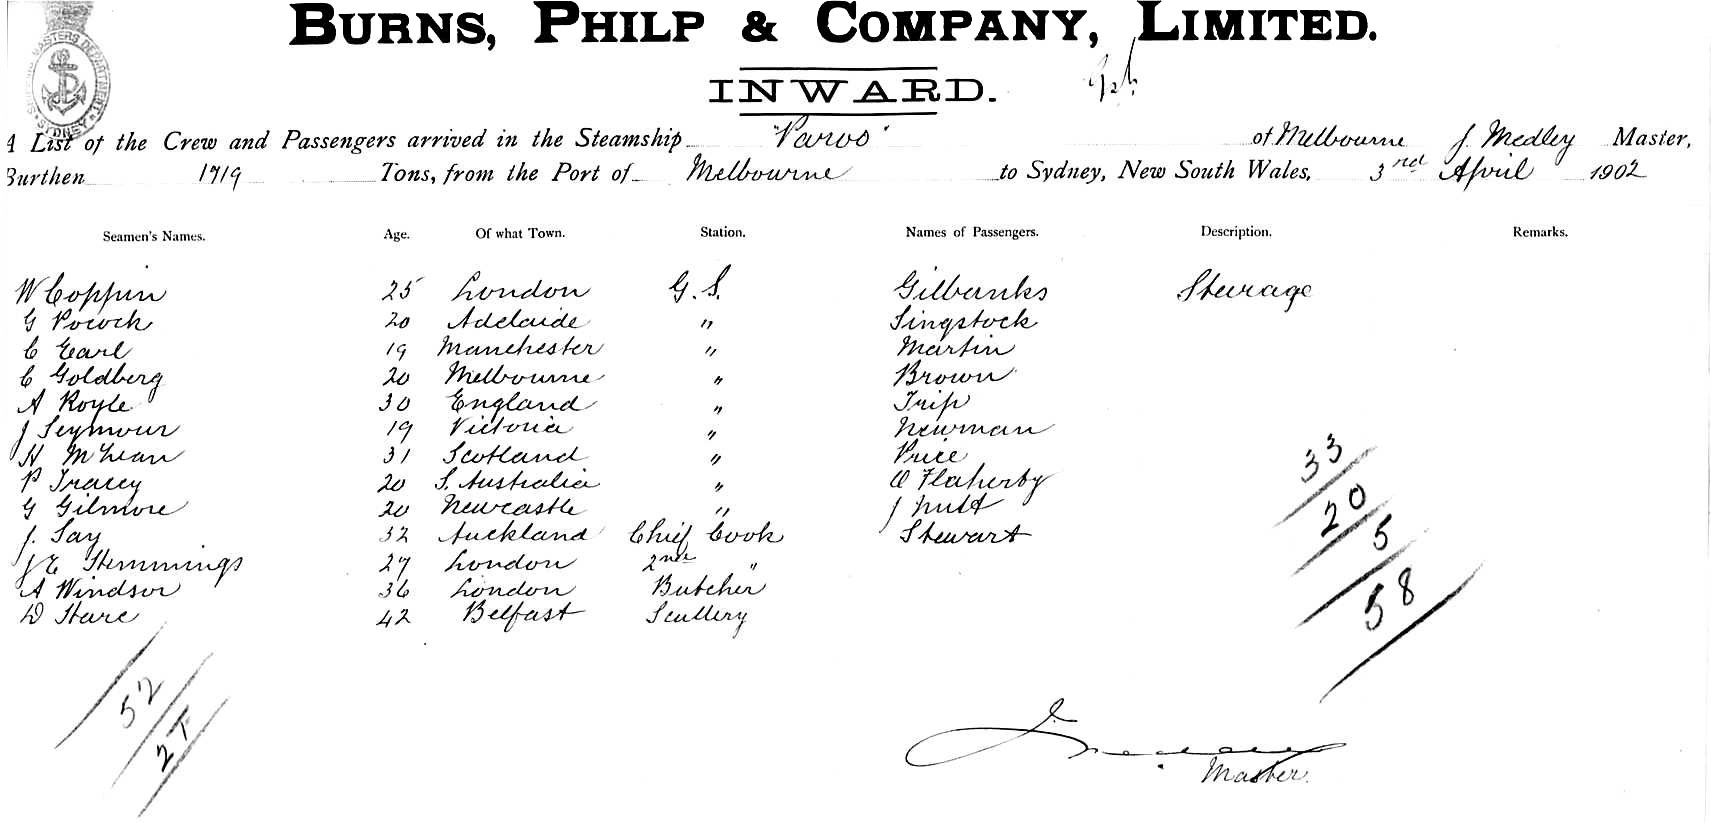 BURNS, PHILP & COMPANY, LIMITED.
INWARD.
A List of the Crew and Passengers arrived in the Steamship "Paroo" of Melbourne J. Medley Master,
Burthen 1719 Tons, from the Port of Melbourne to Sydney, New South Wales, 3rd April 1902
Seamen's Names. Age. Of what Town. Station. Names of Passengers. Description. Remarks.
W Coppin 25 London G.S. Gilbanks Steerage
G Pocock 20 Adelaide " Singstock
C Earl 19 Manchester " Martin
C Goldberg 20 Melbourne " Brown
A Royle 30 England " Trip
J Seymour 19 Victoria " Newman
H McLean 31 Scotland " Price
P Tracey 20 S. Australia " O Flaherty
G Gilmore 20 Newcastle " J Nutt
J. Say 32 Auckland Chief Cook Stewart
J E Hemmings 27 London 2nd "
A Windsor 36 London Butcher
D Hare 42 Belfast Scullery
33
20
5
58
52
27
J. Medley
Master.